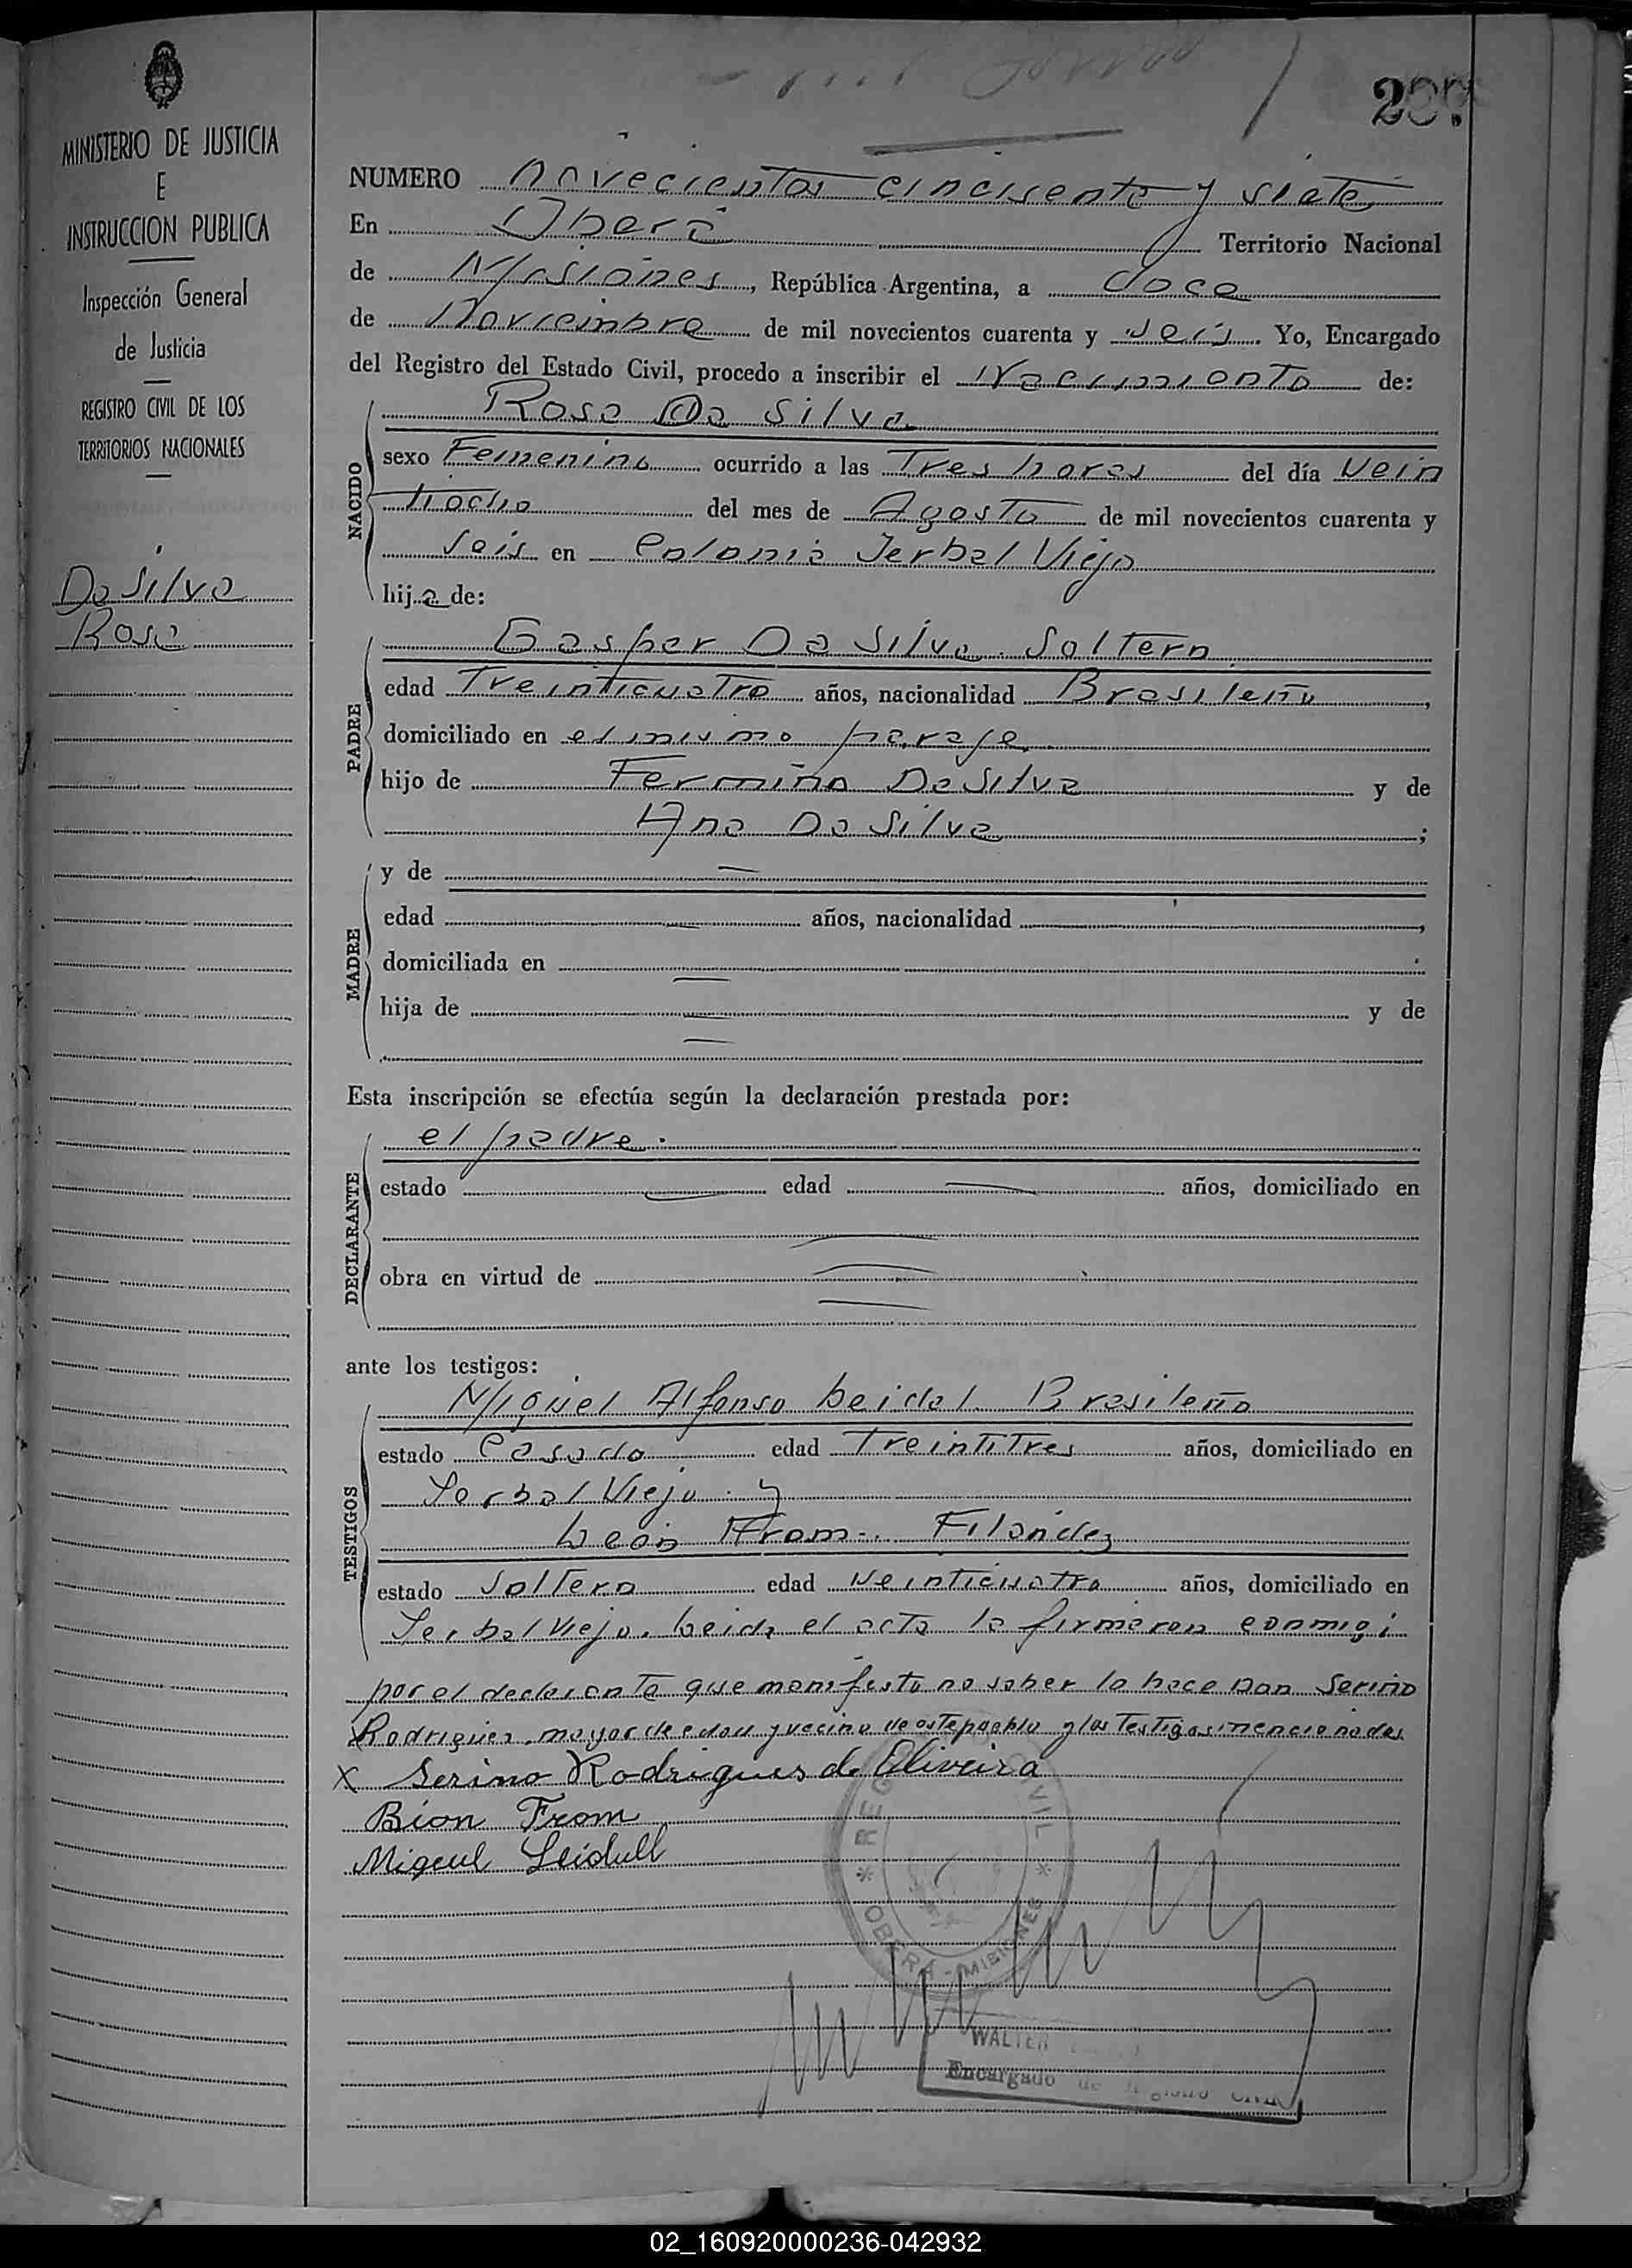 MINISTERIO DE JUSTICIA
E
INSTRUCCION PUBLICA
Inspección General
de Justicia
REGISTRO CIVIL DE LOS
TERRITORIOS NACIONALES
Da Silva
Rosa
NUMERO novecientos cincuenta y siete
En Oberá Territorio Nacional
de Misiones, República Argentina, a doce
de Noviembre de mil novecientos cuarenta y seis. Yo, Encargado
del Registro del Estado Civil, procedo a inscribir el Nacimiento de:
Rosa Da Silva
NACIDO
sexo Femenino ocurrido a las Tres horas del día vein
tiocho del mes de Agosto de mil novecientos cuarenta y
seis en Colonia Yerbal Viejo
hija de:
PADRE
Gaspar Da Silva. Soltero
edad Treinticuatro años, nacionalidad Brasileño,
domiciliado en el mismo paraje
hijo de Fermino Da Silva y de
Ana Da Silva;
MADRE
y de —
edad — años, nacionalidad ,
domiciliada en —
hija de — y de
—
Esta inscripción se efectúa según la declaración prestada por:
DECLARANTE
el padre.
estado — edad — años, domiciliado en
—
obra en virtud de —
—
ante los testigos:
TESTIGOS
Miguel Alfonso Leidal. Brasileño
estado Casado edad Treintitres años, domiciliado en
Yerbal Viejo y
León From.. Filandez
estado Soltero edad Veinticuatro años, domiciliado en
Yerbal Viejo. Leida el acta la firmaron conmigo
por el declarante que manifesto no saber lo hace Don Serino
Rodriguez, mayor de edad y vecino de este pueblo y los Testigos mencionados
X Serino Rodrigues de Oliveira
Bion From
Migeul Leidull
REG CIVIL
OBERA - MISIONES
WALTER
Encargado de Registro Civil
02_160920000236-042932